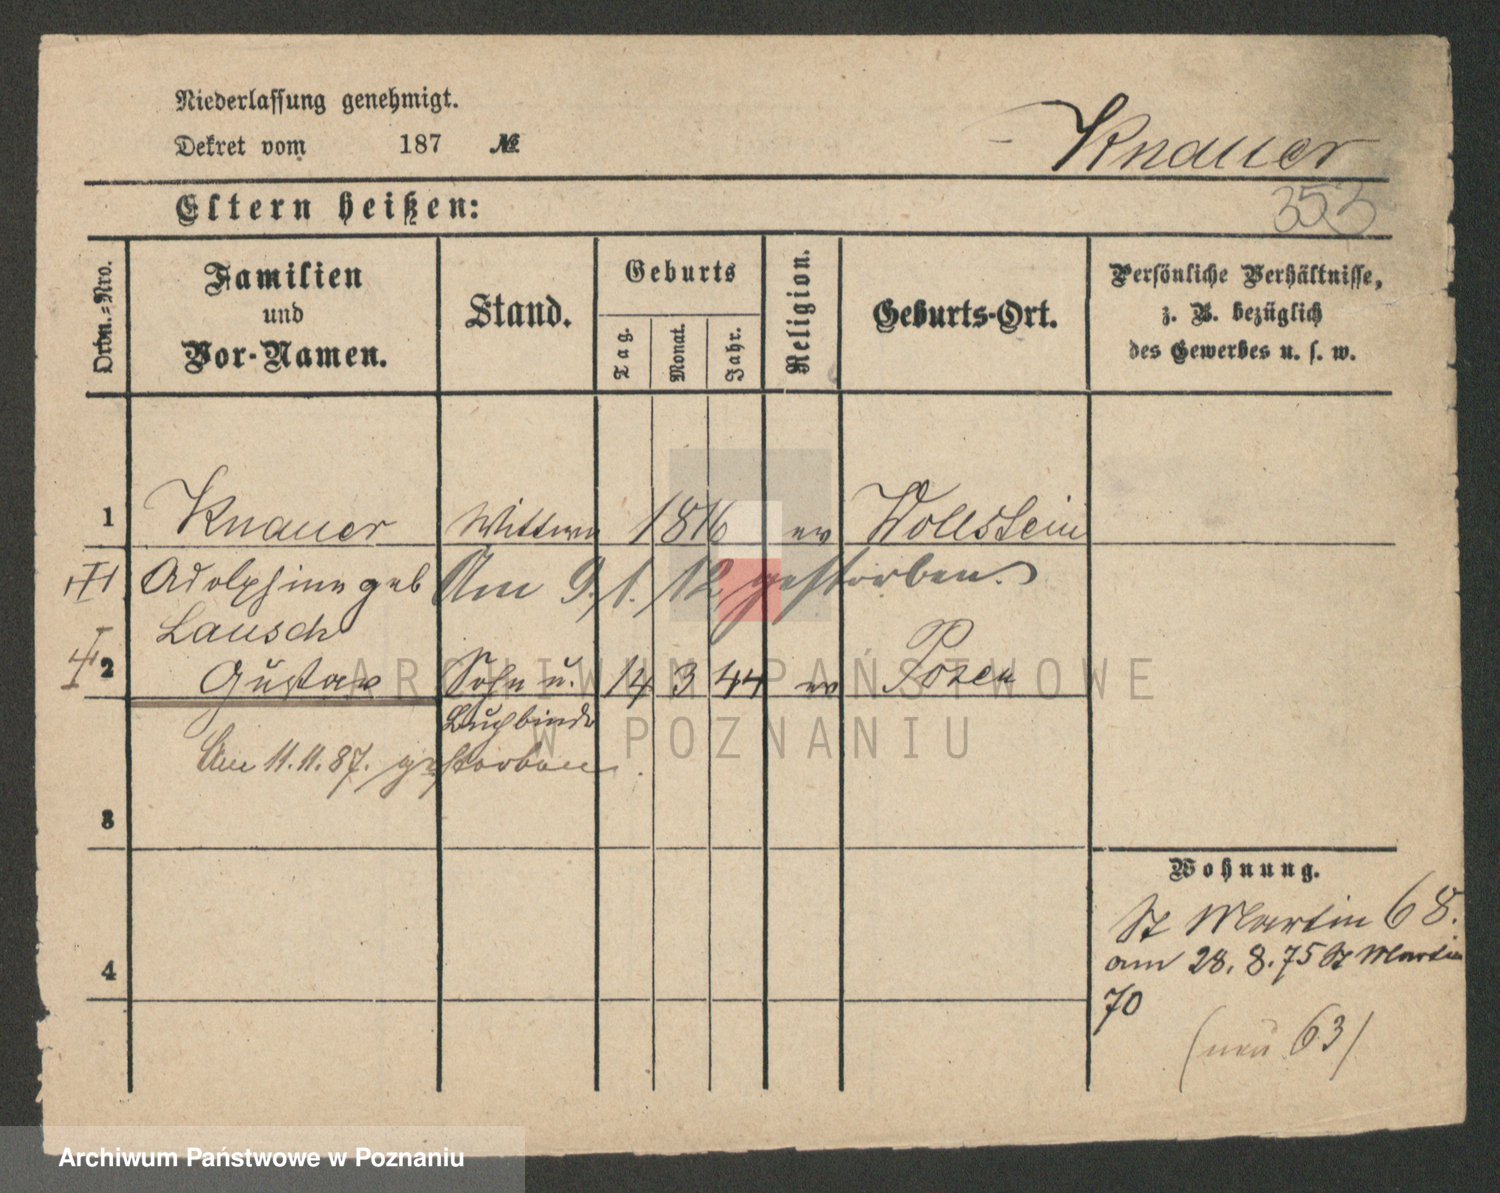 Niederlassung genehmigt.
Dekret vom 187 №
Knauer
353
Eltern heißen:
Ordn.-Nro.
Familien
und
Vor-Namen.
Stand.
Geburts
Tag.
Monat.
Jahr.
Religion.
Geburts-Ort.
Persönliche Verhältnisse,
z. B. bezüglich
des Gewerbes u. s. w.
1 Knauer Wittwe 1816 ev Wollstein
Adolphine geb Am 9.1.12 gestorben.
Lausch
2 Gustav Sohn u. 14 3 44 ev Posen
Buchbinder
Am 11.11.87. gestorben.
3
4
Wohnung.
St Martin 68.
am 28.8.75 St Martin
70
(neu 63)
ARCHIWUM PAŃSTWOWE
W POZNANIU
Archiwum Państwowe w Poznaniu